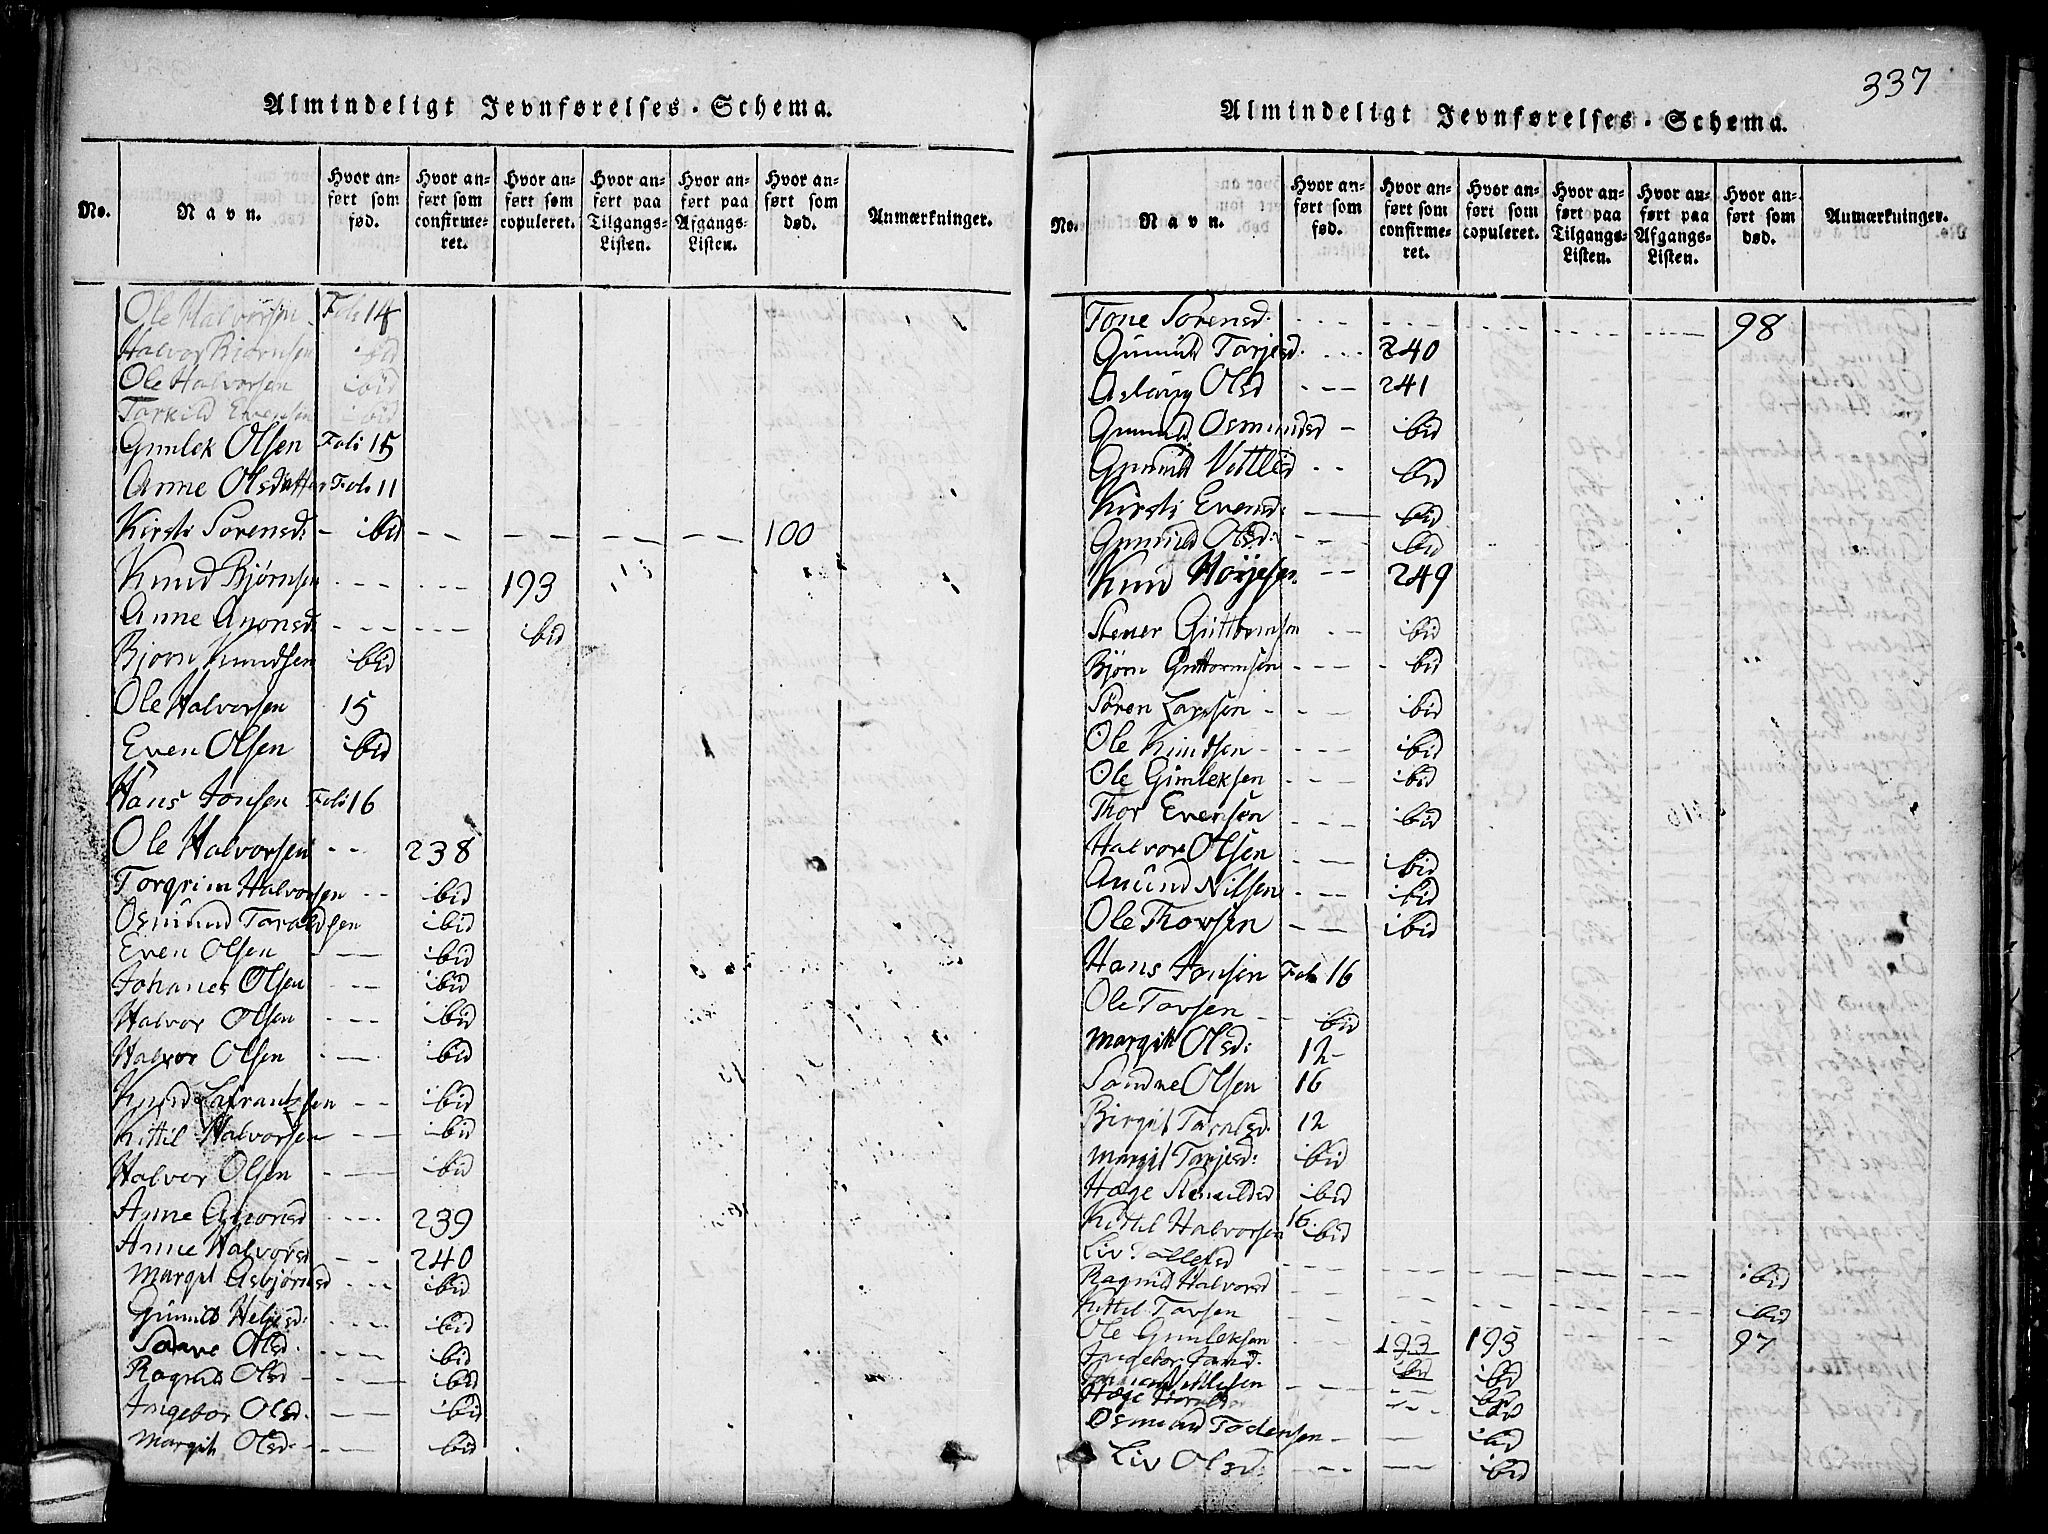 337
Almindeligt Jevnførelses-Schema.
No. Navn. Hvor anført som fød. Hvor anført som confirmeret. Hvor anført som copuleret. Hvor anført paa Tilgangs-Listen. Hvor anført paa Afgangs-Listen. Hvor anført som død. Anmærkninger.
Ole Halvorsen Foli 14
Halvor Bjørnsen ibid
Ole Halvorsen ibid
Tarkild Evensen ibid
Gunlek Olsen Foli 15
Anne Olsdatter Foli 11
Kirsti Sorensd: - ibid - - - - - - 100
Knud Bjørnsen - - - - - 193
Anne Amonsd: - - - - - - ibid
Bjorn Knudsen ibid
Ole Halvorsen 15
Even Olsen ibid
Hans Jonsen Foli 16
Ole Halvorsen - - 238
Torgrim Halvorsen - - ibid
Osmund Taraldsen ibid
Even Olsen - - ibid
Johanes Olsen - - - ibid
Halvor Olsen - - - ibid
Halvor Olsen - - ibid
Knud Lafrantzsen - - ibid
Kittil Halvorsen - - ibid
Halvor Olsen - - ibid
Anne Amonsd - - - 239
Anne Halvorsd - - 240
Margit Asbjørnsd - - - ibid
Gunild Heljesd: - - - ibid
Saave Olsd. - - - ibid
Ragnild Olsd - - ibid
Ingebor Olsd. - - ibid
Margit Olsd: - - - ibid
Almindeligt Jevnførelses-Schema.
No. Navn. Hvor anført som fød. Hvor anført som confirmeret. Hvor anført som copuleret. Hvor anført paa Tilgangs-Listen. Hvor anført paa Afgangs-Listen. Hvor anført som død. Anmærkninger.
Tone Sorensd. - - - - - - - - - - - 98
Gunild Tarjesd. - - - 240
Aslaug Olsd - - - 241
Gunild Osmundsd - ibid
Gunild Vettlesd - - ibid
Kirsti Evensd: - - ibid
Gunild Olsd: - - - ibid
Knud - - 249
Stener Guttormsen - - ibid
Björn Guttormsen - - - - ibid
Sören Larssen - - - ibid
Ole Knudsen - - - - ibid
Ole Gunleksen - - - ibid
Thor Evensen - - - ibid
Halvor Olsen - - ibid
Amund Nilsen - - - ibid
Ole Thorsen - - ibid
Hans Jonsen Foli 16
Ole Tovsen - - ibid
Margit Olsd: 12-
Sondre Olsen 16
Birgit Taralsd. 12
Margit Tarjesd: ibid
Hæge ibid
Kittil Halvorsen 16. ibid
Liv - - - - - - - - - - - ibid
Ragnild Halvorsd - - - - - - - - - - ibid
Kittil Tovsen - - - - - - - - 97
Ole Gunleksen - - 193 193
Ingebor - ibid ibid
Vetlesen - - - - ibid
Hæge - - - ibid
Osmund Todensen - - ibid
Liv Olsd: - - - - - ibid